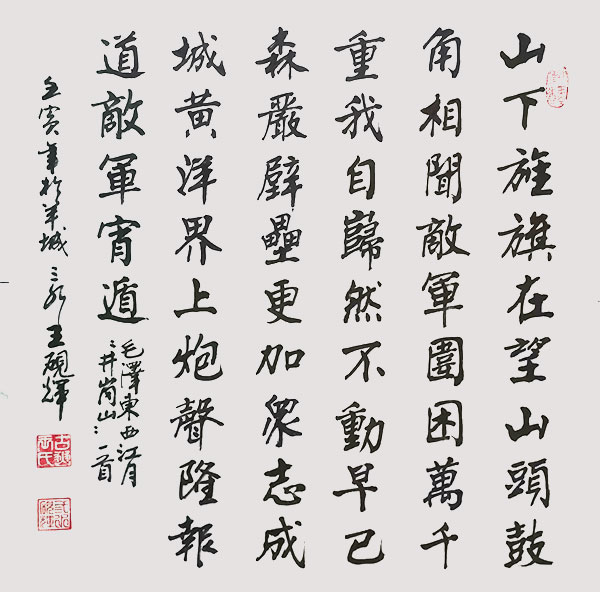 山下旌旗在望山頭鼓
角相聞敵軍圍困萬千
重我自歸然不動早已
森嚴壁壘更加衆志成
城黃洋界上炮聲隆報
道敵軍宵遁
毛澤東西江月
井崗山一首
壬寅年於羊城三水王硯輝